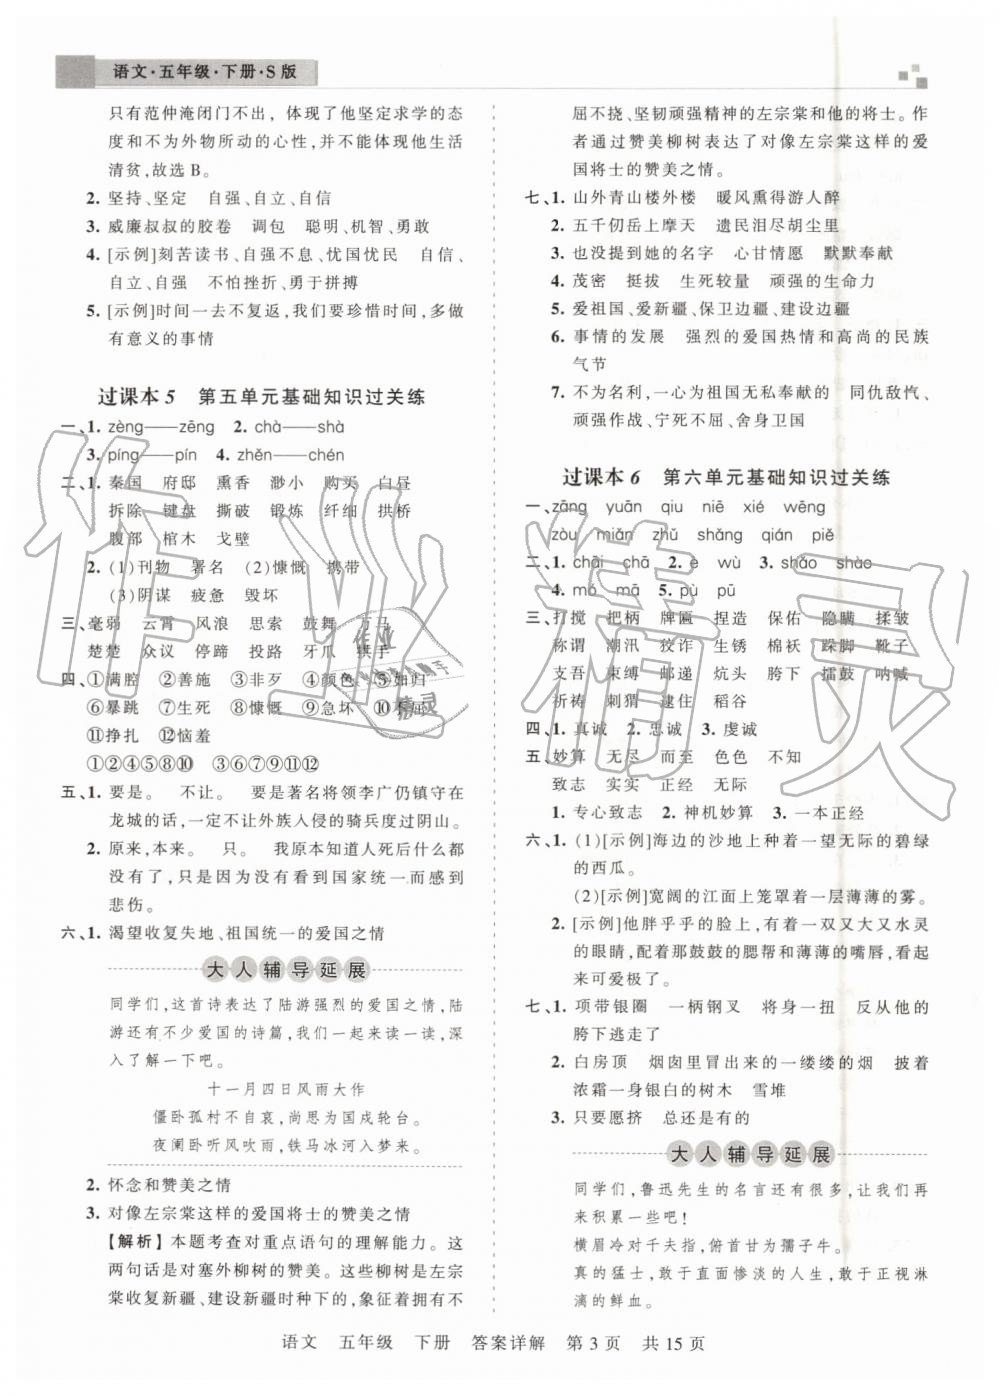 语文·五年级·下册·S版
只有范仲淹闭门不出，体现了他坚定求学的态
度和不为外物所动的心性，并不能体现他生活
清贫，故选B。
2. 坚持、坚定　自强、自立、自信
3. 威廉叔叔的胶卷　调包　聪明、机智、勇敢
4. [示例]刻苦读书、自强不息、忧国忧民　自强、
自立、自强　不怕挫折、勇于拼搏
5. [示例]时间一去不复返，我们要珍惜时间，多做
有意义的事情
过课本5　第五单元基础知识过关练
一、1. zèng——zēng　2. chà——shà
3. píng——pín　4. zhěn——chén
二、1. 秦国　府邸　熏香　渺小　购买　白昼
拆除　键盘　撕破　锻炼　纤细　拱桥
腹部　棺木　戈壁
2. (1)刊物　署名　(2)慷慨　携带
(3)阴谋　疲惫　毁坏
三、毫弱　云霄　风浪　思索　鼓舞　万马
楚楚　众议　停蹄　投路　牙爪　拱手
四、①满腔　②善施　③非歹　④颜色　⑤如归
⑥暴跳　⑦生死　⑧慷慨　⑨急坏　⑩不屈
⑪挣扎　⑫恼羞
①②④⑤⑧⑩　③⑥⑦⑨⑪⑫
五、1. 要是。　不让。　要是著名将领李广仍镇守在
龙城的话，一定不让外族入侵的骑兵度过阴山。
2. 原来，本来。　只。　我原本知道人死后什么都
没有了，只是因为没有看到国家统一而感到
悲伤。
六、1. 渴望收复失地、祖国统一的爱国之情
大人辅导延展
同学们，这首诗表达了陆游强烈的爱国之情，陆
游还有不少爱国的诗篇，我们一起来读一读，深
入了解一下吧。
十一月四日风雨大作
僵卧孤村不自哀，尚思为国戍轮台。
夜阑卧听风吹雨，铁马冰河入梦来。
2. 怀念和赞美之情
3. 对像左宗棠这样的爱国将士的赞美之情
【解析】本题考查对重点语句的理解能力。这
两句话是对塞外柳树的赞美。这些柳树是左宗
棠收复新疆、建设新疆时种下的，象征着具有不
屈不挠、坚韧顽强精神的左宗棠和他的将士。作
者通过赞美柳树表达了对像左宗棠这样的爱
国将士的赞美之情。
七、1. 山外青山楼外楼　暖风熏得游人醉
2. 五千仞岳上摩天　遗民泪尽胡尘里
3. 也没提到她的名字　心甘情愿　默默奉献
4. 茂密　挺拔　生死较量　顽强的生命力
5. 爱祖国、爱新疆、保卫边疆、建设边疆
6. 事情的发展　强烈的爱国热情和高尚的民族
气节
7. 不为名利，一心为祖国无私奉献的　同仇敌忾、
顽强作战、宁死不屈、舍身卫国
过课本6　第六单元基础知识过关练
一、zāng　yuān　qiu　niē　xié　wēng
zòu　miǎn　zhǔ　shǎng　qián　piě
二、1. chāi　chā　2. è　wù　3. shǎo　shào
4. mó　mā　5. pù　pū
三、打搅　把柄　牌匾　捏造　保佑　隐瞒　揉皱
称谓　潮汛　狡诈　生锈　棉袄　跺脚　靴子
支吾　束缚　郑递　炕头　胯下　擂鼓　呐喊
祈祷　刺猬　逮住　稻谷
四、1. 真诚　2. 忠诚　3. 虔诚
五、妙算　无尽　而至　色色　不知
致志　实实　正经　无际
1. 专心致志　2. 神机妙算　3. 一本正经
六、1. (1)[示例]海边的沙地上种着一望无际的碧绿
的西瓜。
(2)[示例]宽阔的江面上笼罩着一层薄薄的雾。
2. [示例]他胖乎乎的脸上，有着一双又大又水灵
的眼睛，配着那鼓鼓的腮帮和薄薄的嘴唇，看起
来可爱极了。
七、1. 项带银圈　一柄钢叉　将身一扭　反从他的
胯下逃走了
2. 白房顶　烟囱里冒出来的一缕缕的烟　披着
浓霜一身银白的树木　雪堆
3. 只要愿挤　总还是有的
大人辅导延展
同学们，鲁迅先生的名言还有很多，让我们再
来积累一些吧！
横眉冷对千夫指，俯首甘为孺子牛。
真的猛士，敢于直面惨淡的人生，敢于正视淋
漓的鲜血。
语文　五年级　下册　答案详解　第3页　共15页
作业精灵